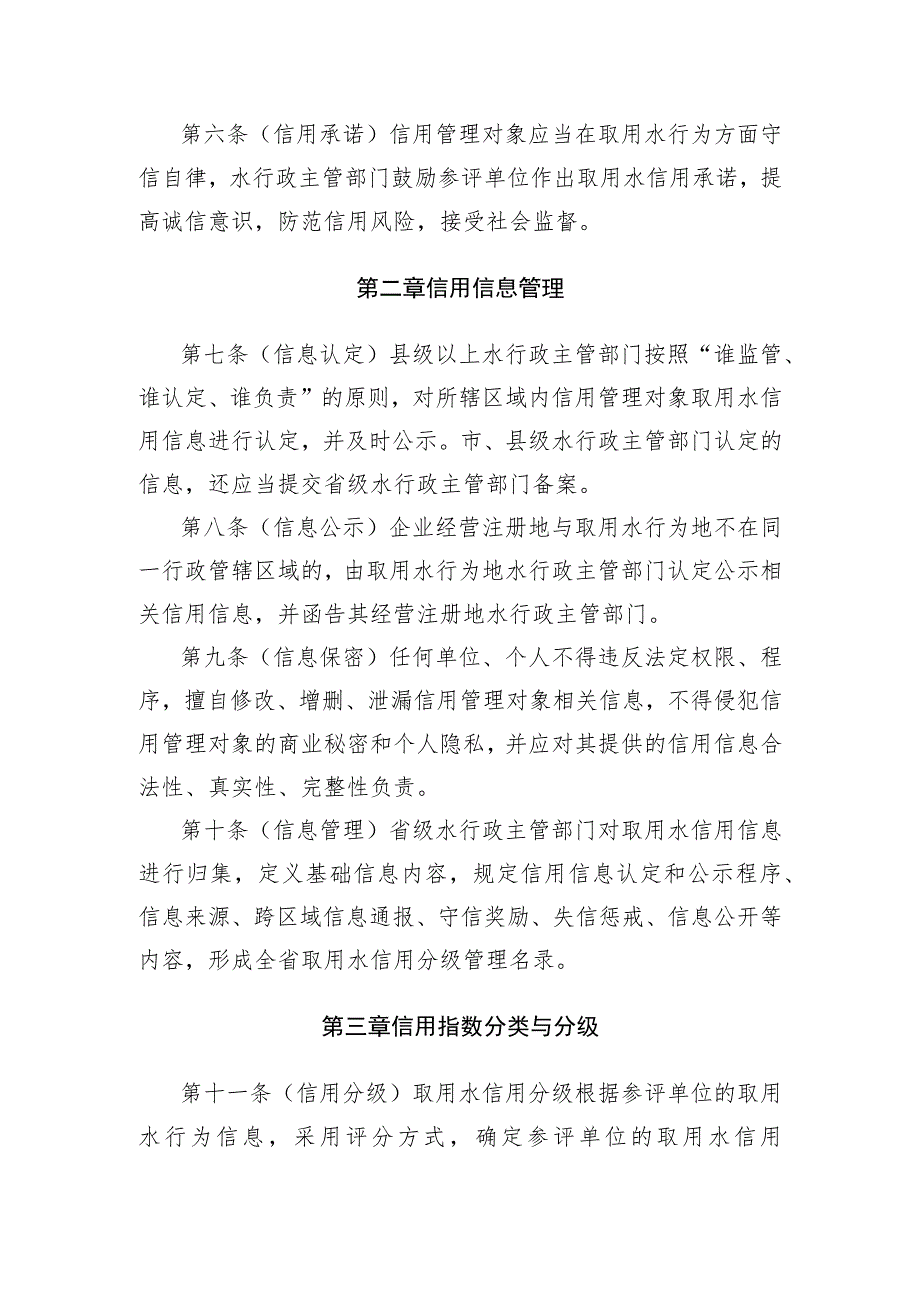 第六条（信用承诺）信用管理对象应当在取用水行为方面守
信自律，水行政主管部门鼓励参评单位作出取用水信用承诺，提
高诚信意识，防范信用风险，接受社会监督。
第二章信用信息管理
第七条（信息认定）县级以上水行政主管部门按照“谁监管、
谁认定、谁负责”的原则，对所辖区域内信用管理对象取用水信
用信息进行认定，并及时公示。市、县级水行政主管部门认定的
信息，还应当提交省级水行政主管部门备案。
第八条（信息公示）企业经营注册地与取用水行为地不在同
一行政管辖区域的，由取用水行为地水行政主管部门认定公示相
关信用信息，并函告其经营注册地水行政主管部门。
第九条（信息保密）任何单位、个人不得违反法定权限、程
序，擅自修改、增删、泄漏信用管理对象相关信息，不得侵犯信
用管理对象的商业秘密和个人隐私，并应对其提供的信用信息合
法性、真实性、完整性负责。
第十条（信息管理）省级水行政主管部门对取用水信用信息
进行归集，定义基础信息内容，规定信用信息认定和公示程序、
信息来源、跨区域信息通报、守信奖励、失信惩戒、信息公开等
内容，形成全省取用水信用分级管理名录。
第三章信用指数分类与分级
第十一条（信用分级）取用水信用分级根据参评单位的取用
水行为信息，采用评分方式，确定参评单位的取用水信用